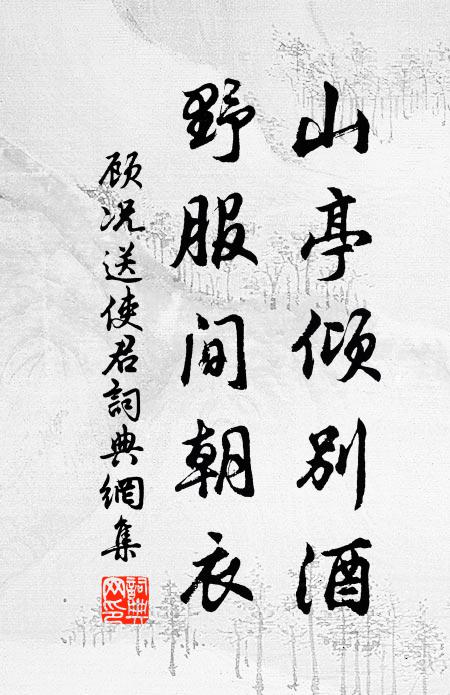 山亭倾别酒
野服间朝衣
顾况送使君詞典網集
詞典
网印